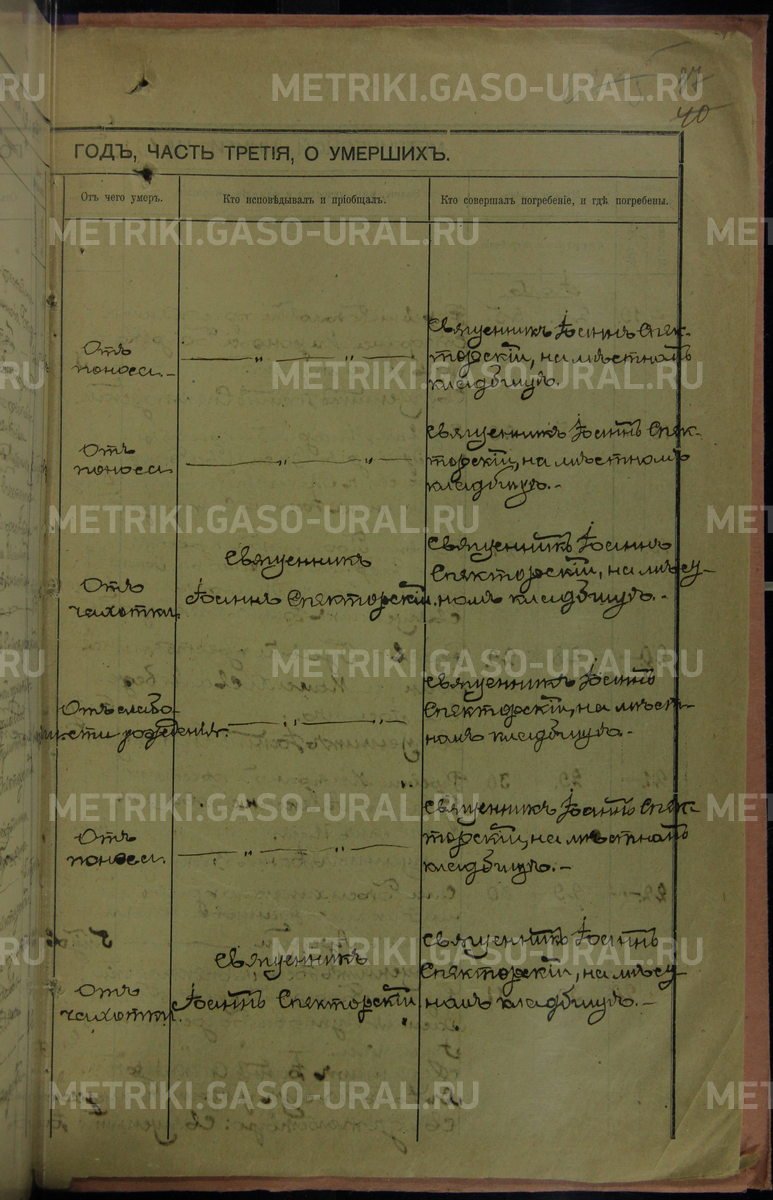 27
40
ГОДЪ, ЧАСТЬ ТРЕТІЯ, О УМЕРШИХЪ.
Отъ чего умеръ.
Кто исповѣдывалъ и пріобщалъ.
Кто совершалъ погребеніе, и гдѣ погребены.
Отъ
поноса. —
— „ — „ —
Священникъ Іоаннъ Спек-
торскій, на мѣстномъ
кладбищѣ.
Отъ
поноса
— „ — „ —
Священникъ Іоаннъ Спек-
торскій, на мѣстномъ
кладбищѣ. -
Отъ
чахотки.
Священникъ
Іоаннъ Спекторскій.
Священникъ Іоаннъ
Спекторскій, на мѣст-
номъ кладбищѣ. -
Отъ слабо-
сти рожденія.
— „ — „
Священникъ Іоаннъ
Спекторскій, на мѣст-
номъ кладбищѣ. -
Отъ
поноса.
— „ — „ —
Священникъ Іоаннъ Спек-
торскій, на мѣстномъ
кладбищѣ. -
Отъ
чахотки.
Священникъ
Іоаннъ Спекторскій
Священникъ Іоаннъ
Спекторскій, на мѣст-
номъ кладбищѣ. -
METRIKI.GASO-URAL.RU